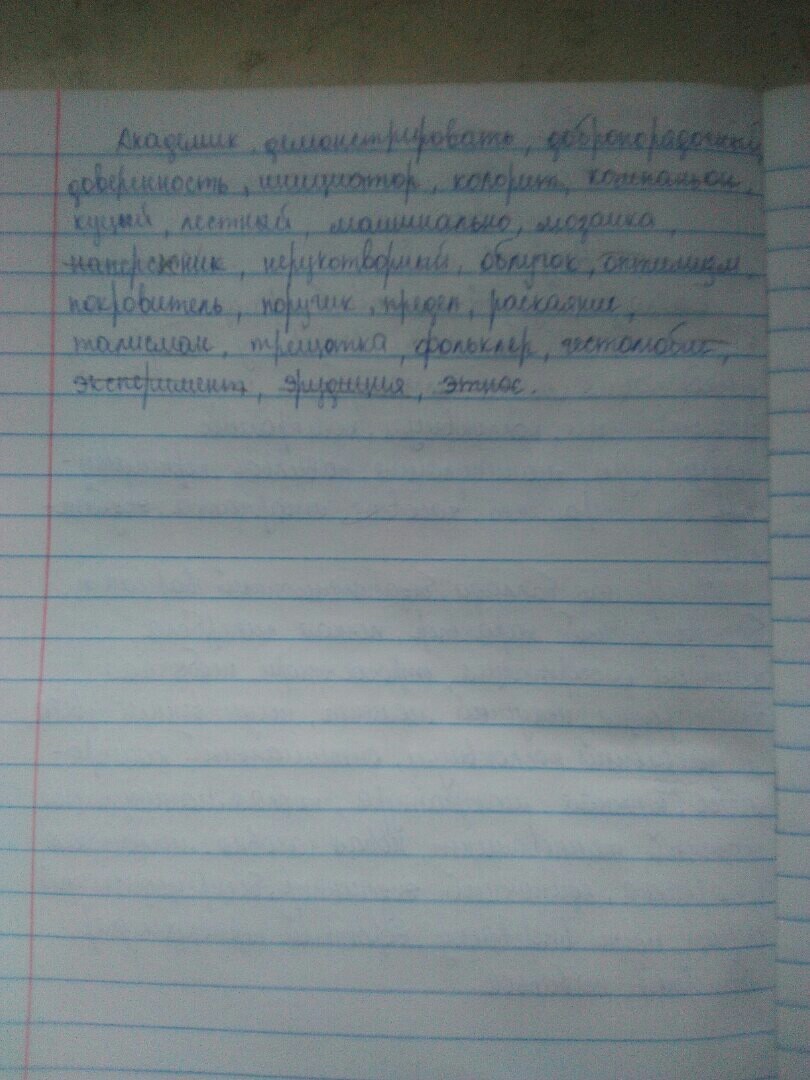 Академик, демонстрировать, добропорядочный
доверенность, инициатор, колорит, компаньон,
куцый, лестный, машинально, мозаика,
наперсник, нерукотворный, облучок, оптимизм,
покровитель, поручик, предел, раскаяние,
талисман, трещотка, фольклер, честолюбие,
эксперимент, эрудиция, этнос.